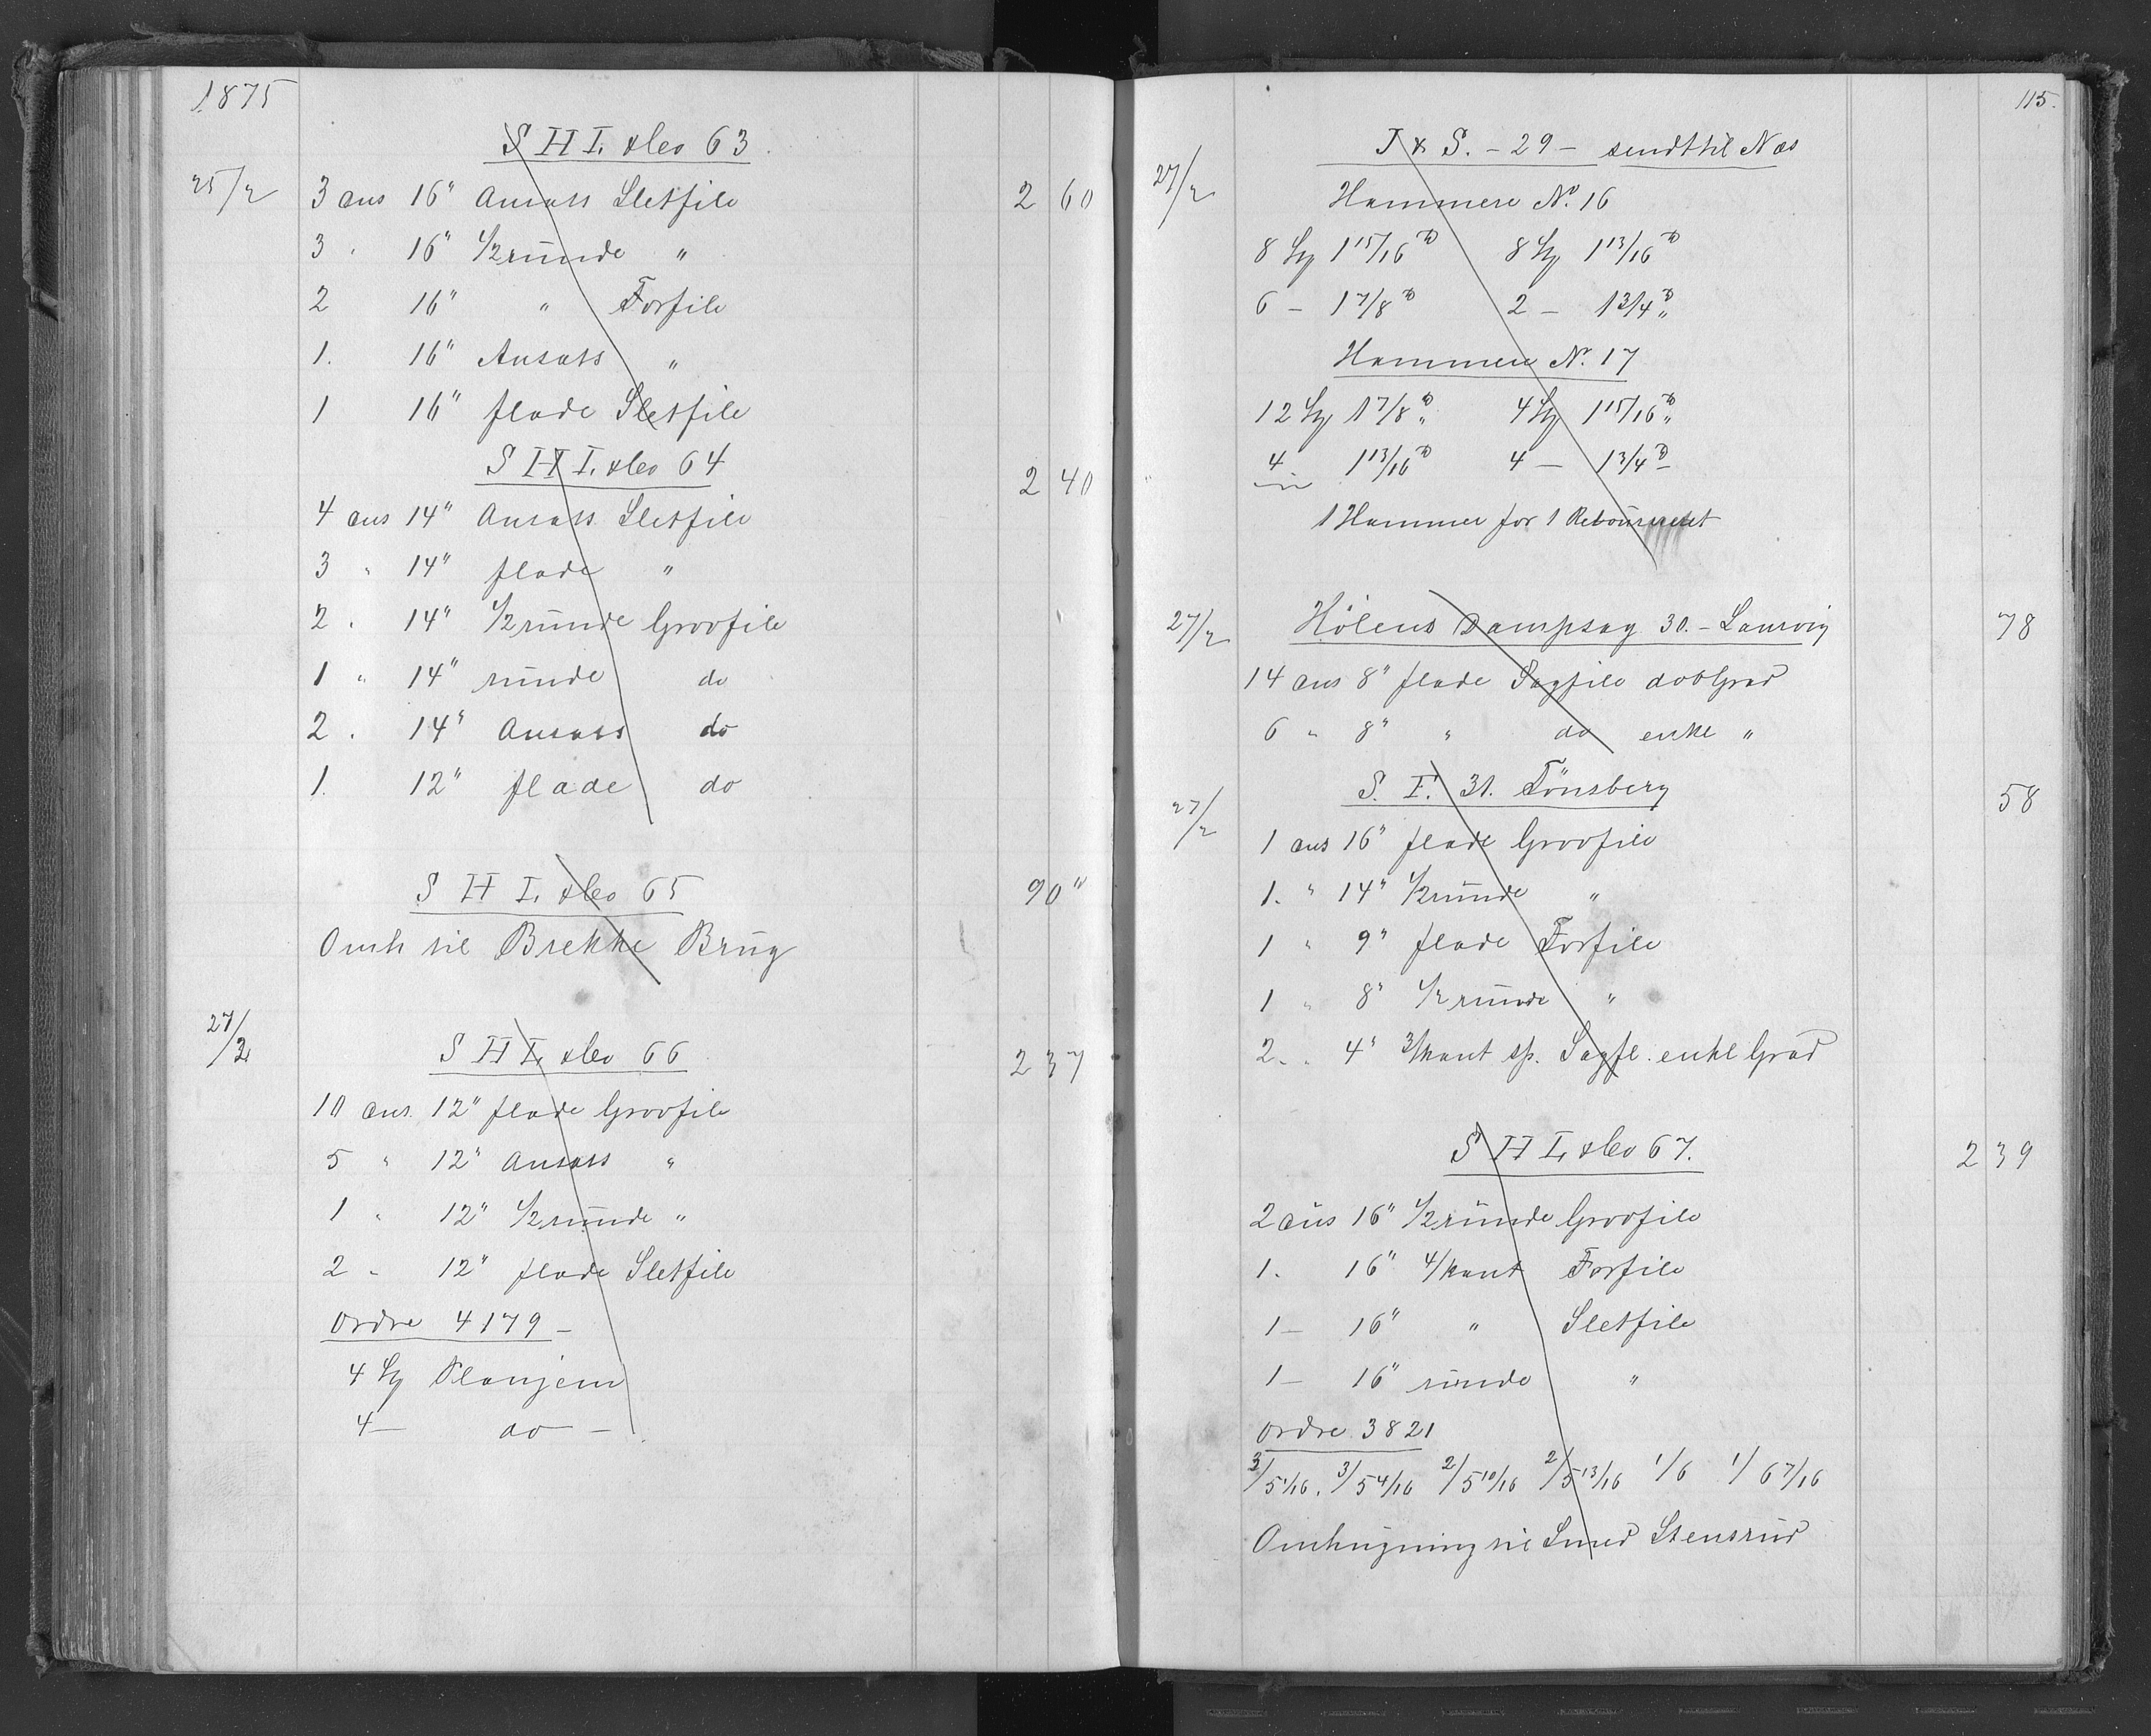 1875
S H I. & Co 63
25/2 3 aus 16" Ansats Sletfile 2 60
3 " 16" 1/2 runde "
2 16" " Forfile
1. 16" Ansats "
1 16" flade Sletfile
S H I. & Co 64 2 40
4 aus 14" Ansats Sletfile
3 " 14" flade "
2 " 14" 1/2 runde Grovfile
1 " 14" runde do
2 . 14" Ansats do
1. 12" flade do
S H I. & Co 65 90 "
Omh til Brekke Brug
27/2 S H I. & Co 66 2 37
10 aus. 12" flade Grovfile
5 " 12" Ansats "
1 " 12" 1/2 runde "
2 " 12" flade Sletfile
Ordre 4179 –
4 St Planjern
4 – do –
115.
27/2 J & S. – 29 – sendt til Næs
Hammere No. 16
8 St 1 15/16 " 8 St 1 13/16 "
6 – 1 7/8 " 2 – 1 3/4 "
Hammere N. 17
12 St 1 7/8 " 4 St 1 15/16 "
4 1 13/16 " 4 – 1 3/4 "
1 Hammer for 1
27/2 Hölens Dampsag 30. – Laurvig 78
14 aus 8" flade Sagfile dob Grad
6 " 8" " do enke "
27/2 S. F. 31. Tönsberg 58
1 aus 16" flade Grovfile
1. " 14" 1/2 runde "
1 " 9" flade Forfile
1 " 8" 1/2 runde "
2. " 4" 3/kant sp. Sagfl. enkl Grad
S H I. & Co 67. 2 39
2 aus 16" 1/2 runde Grovfile
1. 16" 4/kant Forfile
1 – 16" " Sletfile
1 – 16" runde "
Ordre 3821
3/5 1/16. 3/5 4/16 2/5 10/16 2/5 13/16 1/6 1/6 7/16
Omhugning til Smed Stensrud